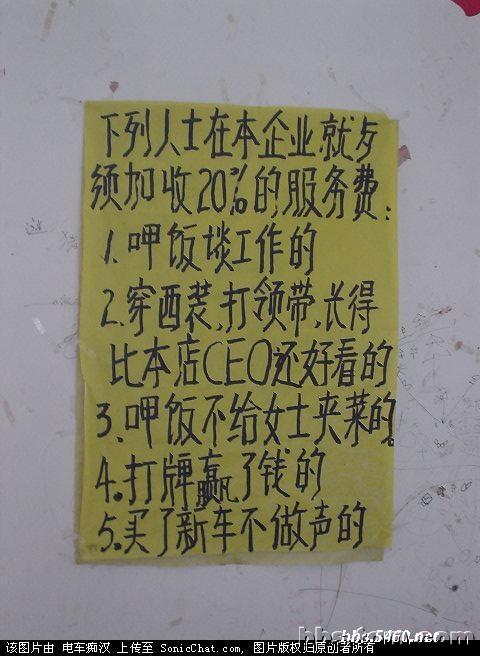 下列人士在本企业就歺
须加收20%的服务费:
1.呷饭谈工作的
2.穿西装,打领带,长得
比本店CEO还好看的
3、呷饭不给女士夹菜的。
4.打牌赢了钱的
5.买了新车不做声的
bbs.5460.net
该图片由 电车痴汉 上传至 SonicChat.com, 图片版权归原创著者所有